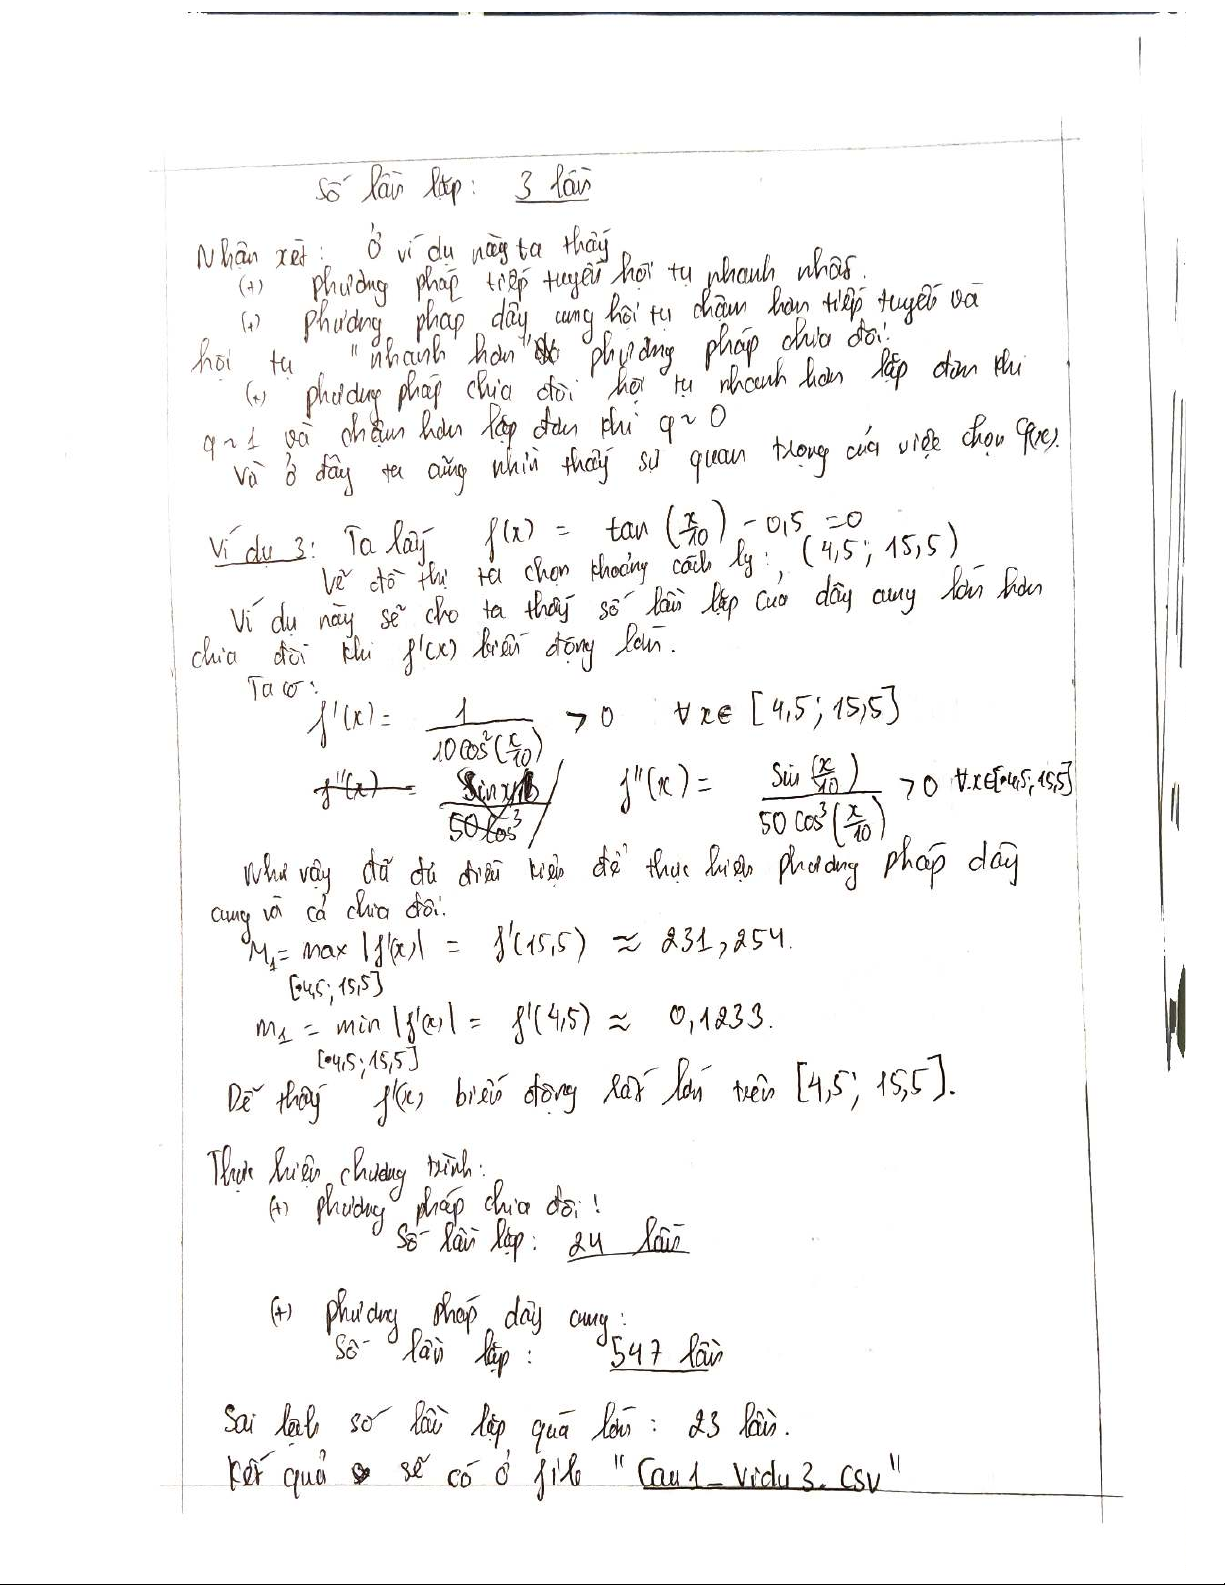 Số lần lặp: 3 lần
Nhận xét: Ở ví dụ này ta thấy
(+) phương pháp tiếp tuyến hội tụ nhanh nhất.
(+) phương pháp dây cung hội tụ chậm hơn tiếp tuyến và
hội tụ "nhanh hơn" phương pháp chia đôi.
(+) phương pháp chia đôi hội tụ nhanh hơn lặp đơn khi
q ~ 1 và chậm hơn lặp đơn khi q ~ 0
Và ở đây ta cũng nhìn thấy sự quan trọng của việc chọn φ(x).
Ví dụ 3: Ta lấy f(x) = tan(x/10) - 0,5 = 0
Vẽ đồ thị ta chọn khoảng cách ly: (4,5; 15,5)
Ví dụ này sẽ cho ta thấy số lần lặp của dây cung lớn hơn
chia đôi khi f'(x) biến động lớn.
Ta có:
f'(x) = 1/(10cos²(x/10)) > 0 ∀x∈ [4,5; 15,5]
f''(x) = sin(x/10)/(50cos³(x/10)) > 0 ∀x∈[4,5; 15,5]
Như vậy đã đủ điều kiện để thực hiện phương pháp dây
cung và cả chia đôi.
M₁ = max |f'(x)| = f'(15,5) ≈ 231,254.
[4,5; 15,5]
m₁ = min |f'(x)| = f'(4,5) ≈ 0,1233.
[4,5; 15,5]
Dễ thấy f'(x) biến động rất lớn trên [4,5; 15,5].
Thực hiện chương trình:
(+) phương pháp chia đôi:
Số lần lặp: 24 lần
(+) phương pháp dây cung:
Số lần lặp: 547 lần
Sai lệch số lần lặp quá lớn: 23 lần.
Kết quả sẽ có ở file "Cau1_Vidu3.csv"